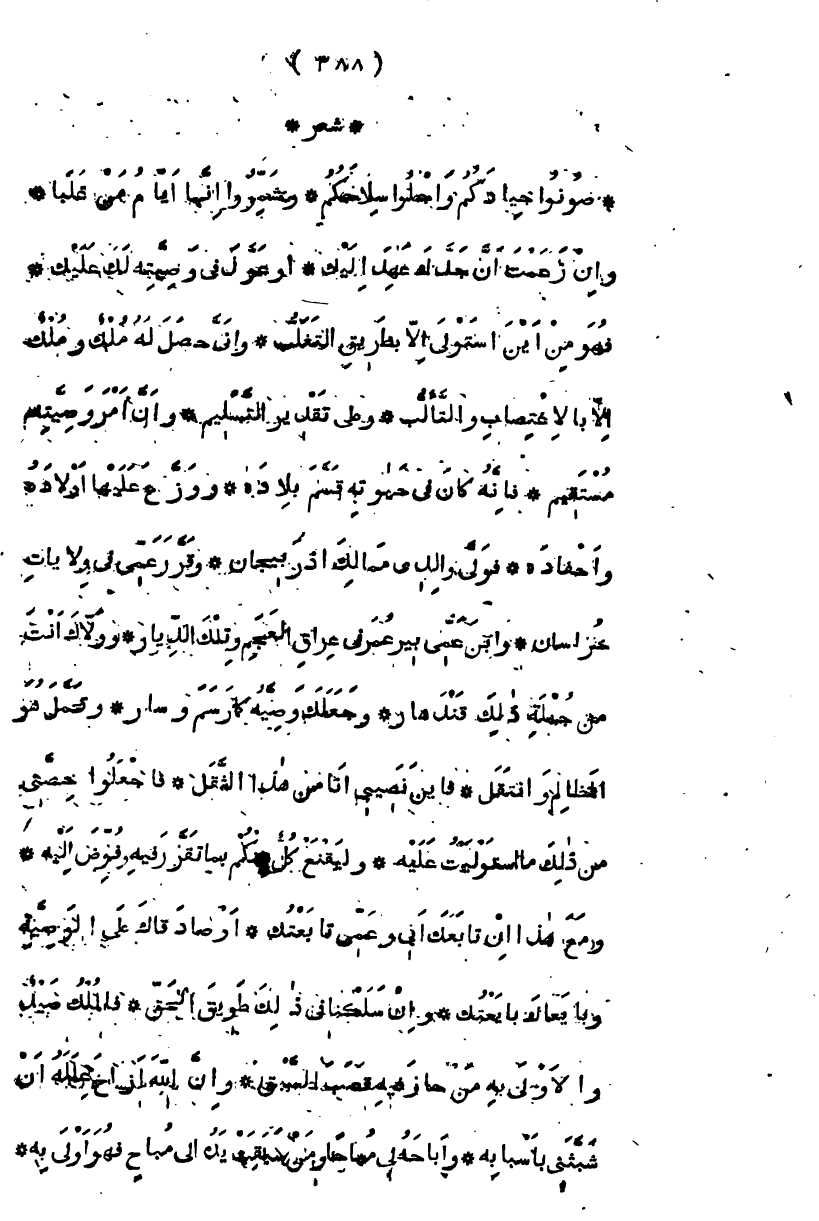 ( ٣٨٨ )
* شعر *
* صُونُوا جِيادَكُم وَاجْلُوا سِلَاحَكُمُ * وشَمِّرُوا إِنَّها أَيّامُ مَنْ غَلَبا *
وإنْ زَعَمْتَ أَنَّ جَدَّكَ عَهِدَ إِلَيْكَ * أو عَوَّلَ فى وَصِيَّتِه لَكَ عَلَيْك *
فهُوَ مِنْ أَيْنَ اسْتَوْلَى إِلّا بطَرِيقِ التَّغَلُّب * وانَّى حصَلَ لَهُ مُلْكٌ ومُلْك
إِلّا بالاغْتِصابِ والتَّأَلُّب * وعلى تَقْدِيرِ التَّسْلِيم * وانَّ أَمْرَ وَصِيَّتِه
مُسْتَقِيم * فانَّه كانَ فى حَيٰوتِه قَسَّمَ بِلادَه * ووَزَّعَ عَلَيْها اَوْلادَه
وأَحْفادَه * فوَلَّى والِدِى مَمالِكَ اذرَبِيجان * وقَرَّرَ عَمِّى فى وِلاياتِ
خُراسان * وابْنَ عَمِّى بِير عُمَرَ فى عِراقِ العَجَمِ وتِلْكَ الدِّيار * ووَلّاكَ اَنْتَ
من جُمْلَةِ ذٰلِكَ قَنْدَهار * وجَعَلَكَ وَصِيَّهُ كَما رَسَمَ وسار * وتَحَمَّلَ هُوَ
المَظالِمَ وَانْتَقَل * فاين نَصِيبِى اَنا من هٰذا الثَّقَل * فاجْعَلُوا حِصَّتِى
من ذٰلِكَ ما اسْتَوْلَيْتُ عَلَيْه * ولْيَقْنَعْ كُلٌّ مِنْكُمْ بما تَقَرَّرَ فيه وفُوِّضَ اِلَيْه *
ومَعَ هٰذا اِنْ تابَعَكَ اَبِى وعَمِّى تابَعْتُك * اَوْ صادَقاكَ عَلَى الوَصِيَّةِ
وبايَعاكَ بايَعْتُك * واِنْ سَلَكْنا فى ذٰلِكَ طَرِيقَ الحَقّ * فالمُلْكُ صَيْدٌ
والاَوْلَى بِهِ مَنْ حازَ فيه قَصَبَ السَّبْق * وانَّ اللّٰهَ اَزاحَ عِلَلَهُ اَنْ
شَبَّثَنِى بأَسْبابِه * وأَباحَهُ لِى مُباحًا ومَنْ سَبَقَتْ يَدُهُ الى مُباحٍ فهُوَ أَوْلَى بِه *